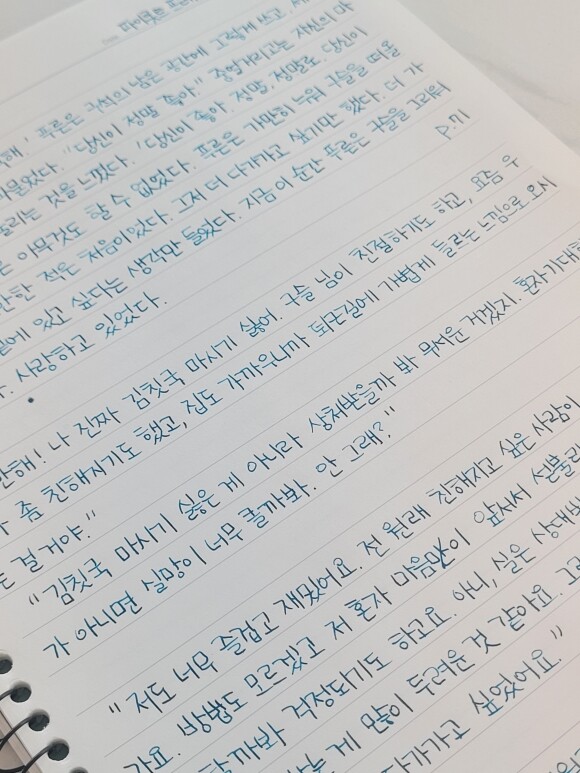 푸른은 구슬의 남은 공간에 그렇게 쓰고,
머물렀다. "당신이 정말 좋아" 중얼거리고는 자신의 마
것을 느꼈다. '당신이 좋아. 정말, 정말로. 당신이
아무것도 할 수 없었다. 푸른은 가만히 누워 구슬을 떠올
한 적은 처음이었다. 그저 더 다가가고 싶기만 했다. 더 가
에 있고 싶다는 생각만 들었다. 지금 이 순간 푸른은 구슬을 그리워
사랑하고 있었다.
P.71
나 진짜 김칫국 마시기 싫어. 구슬 님이 친절하기도 하고, 요즘 우
좀 친해지기도 했고, 집도 가까우니까 퇴근길에 가볍게 들르는 느낌으로 오시
걸 거야."
"김칫국 마시기 싫은 게 아니라 상처받을까 봐 무서운 거겠지. 혼자 기대
가 아니면 실망이 너무 클까봐. 안 그래?"
"저도 너무 즐겁고 재밌어요. 전 원래 친해지고 싶은 사람이
방법도 모르겠고 저 혼자 마음만이 앞서서 섣불리
가요. 할까봐 걱정되기도 하고요. 아니, 실은 상대방
게 많이 두려운 것 같아요. 그
다가가고 싶었어요."